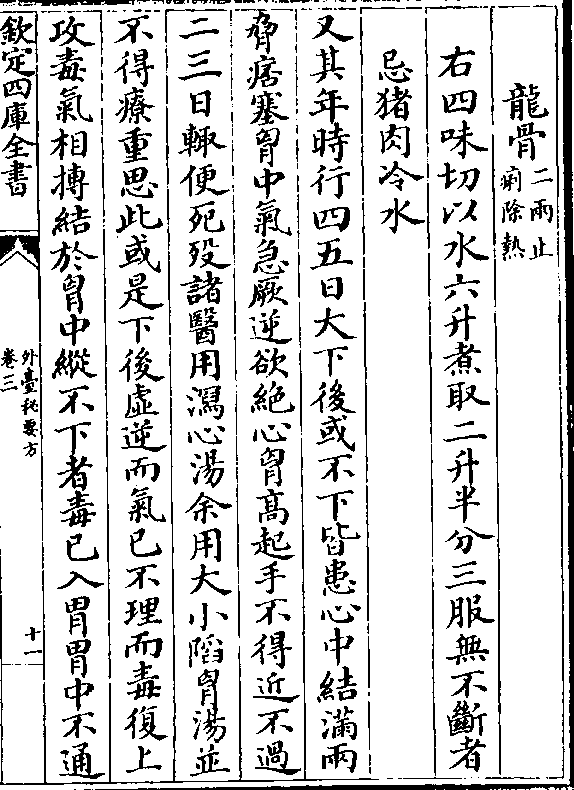 龍骨二兩止
痢除熱
右四味切以水六升煮取二升半分三服無不斷者
忌猪肉冷水
又其年時行四五日大下後或不下皆患心中結滿兩
脅痞塞胷中氣急厥逆欲絶心胷高起手不得近不過
二三日輙便死殁諸醫用瀉心湯余用大小陷胷湯並
不得療重思此或是下後虛逆而氣已不理而毒復上
攻毒氣相摶結於胷中縱不下者毒已入胃胃中不通
欽定四庫全書
外臺秘要方
卷三
十一